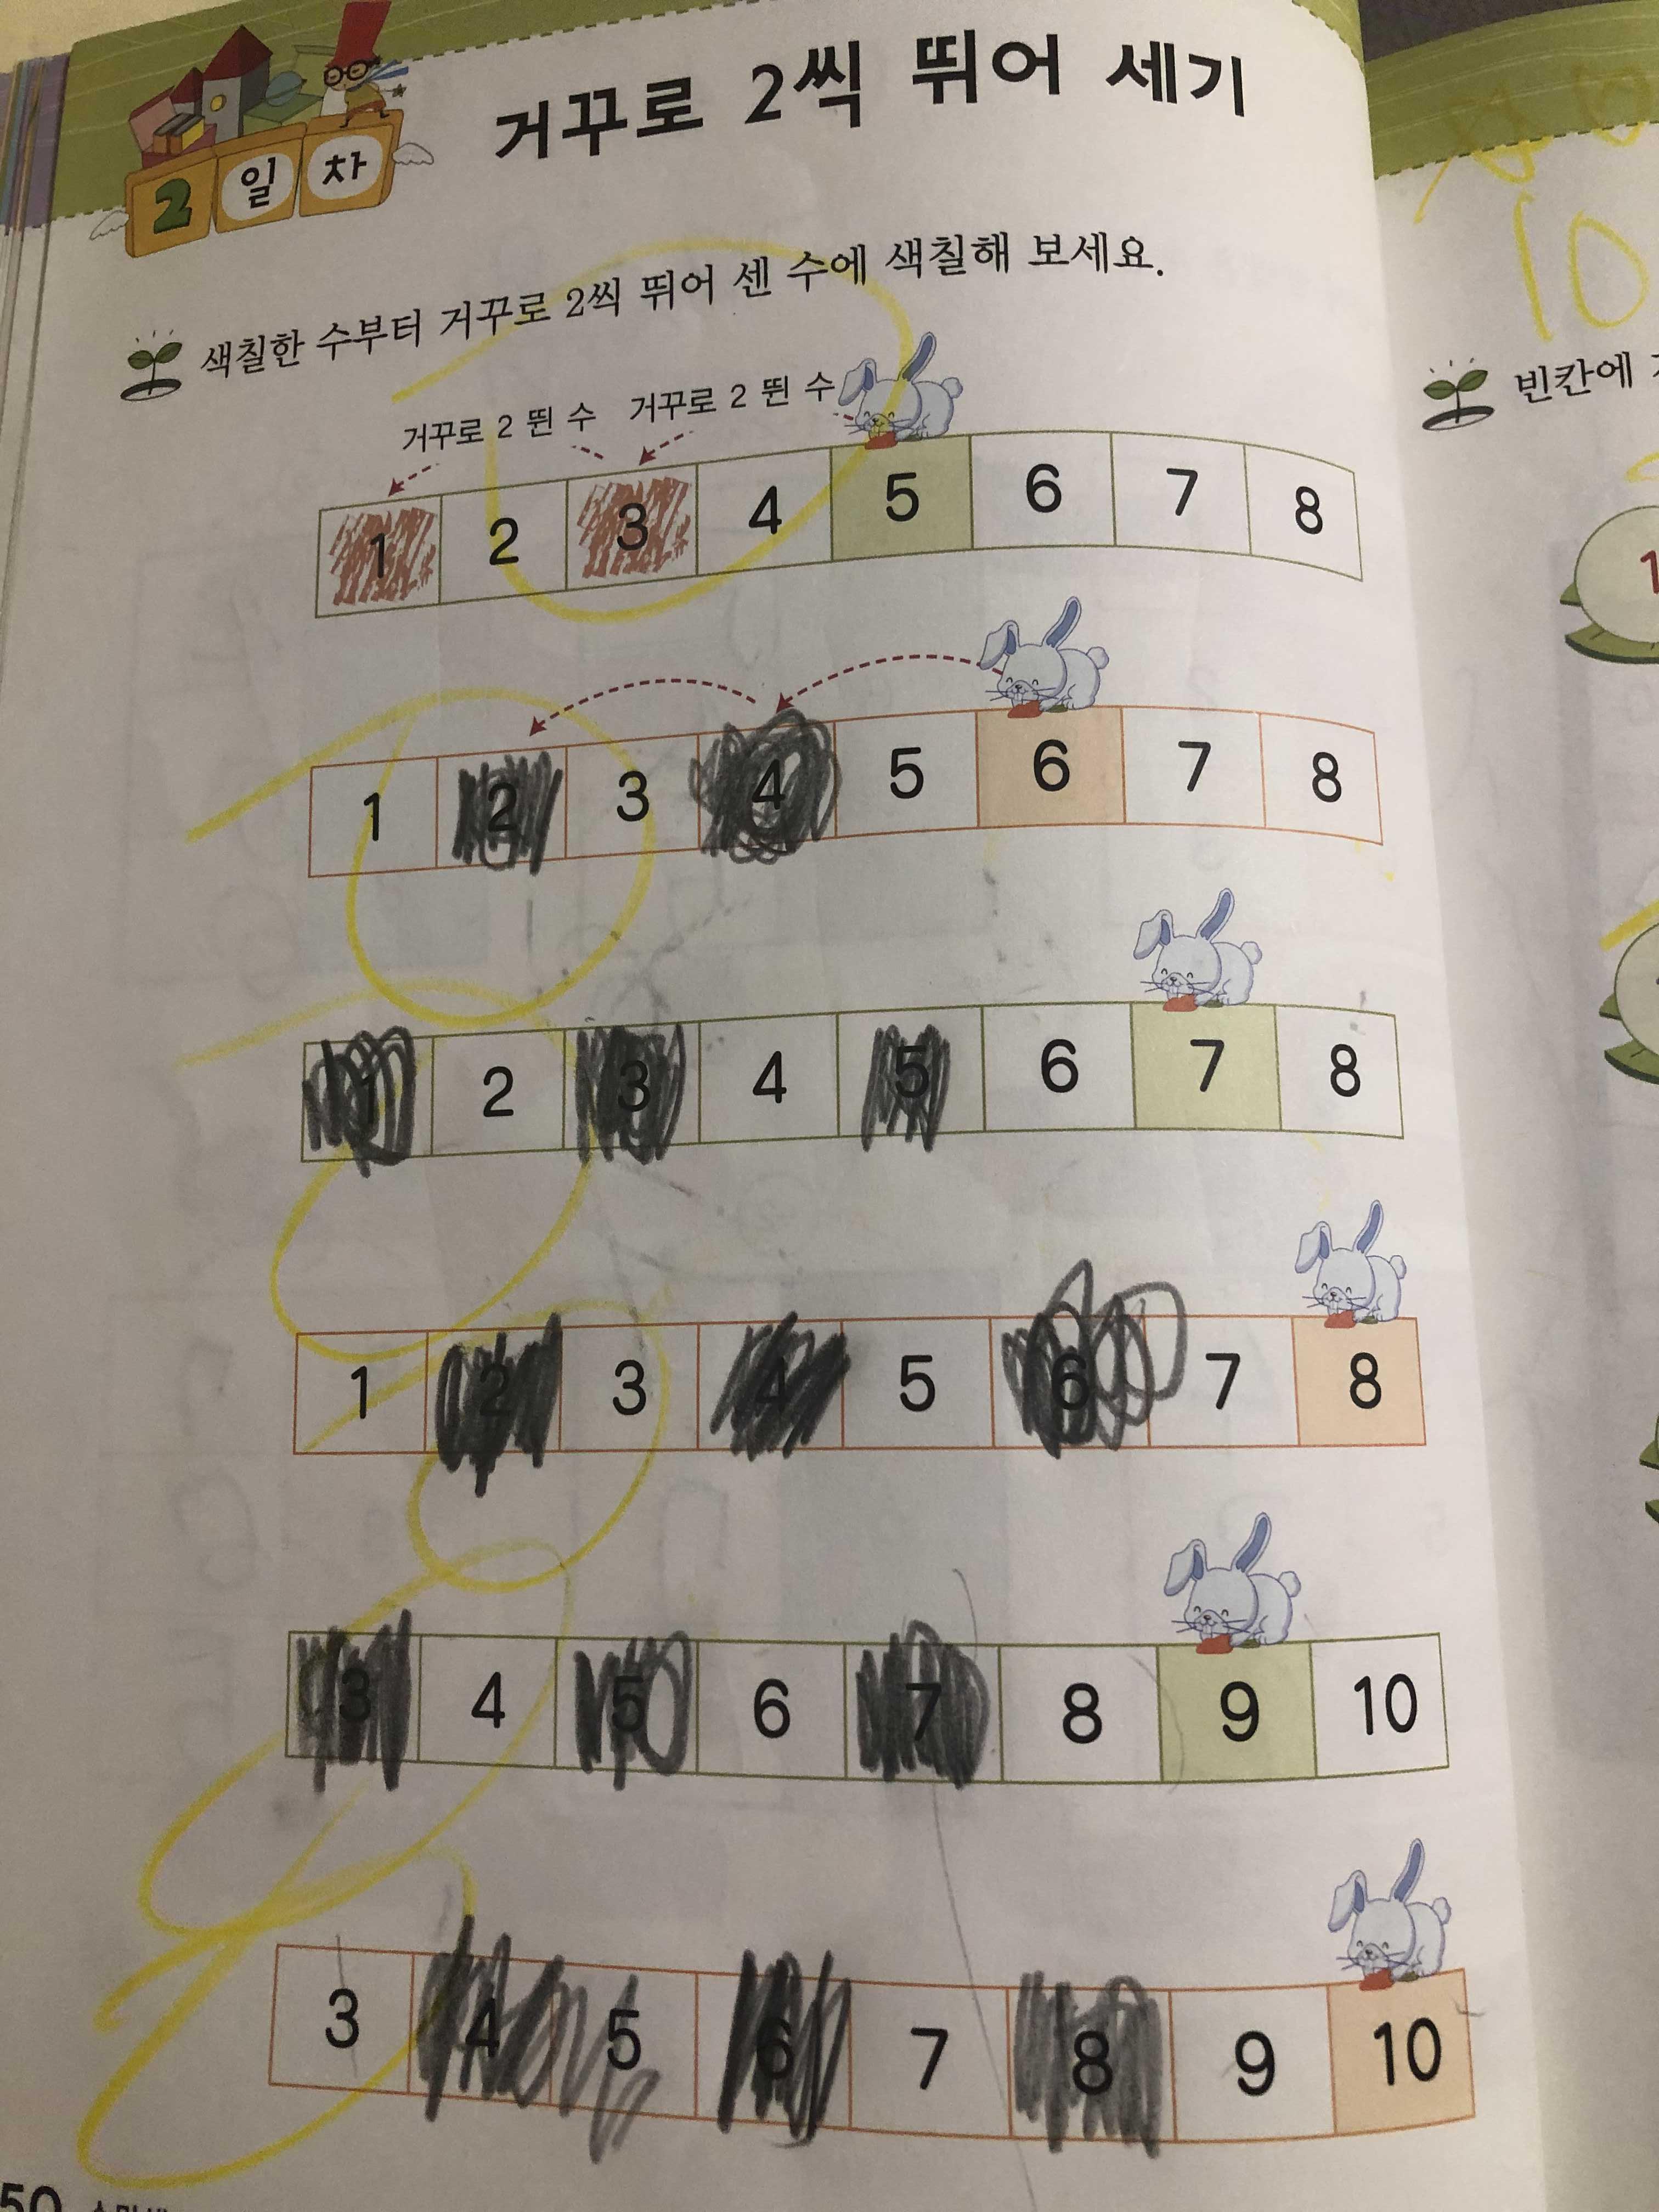 거꾸로 2씩 뛰어 세기
2일차
색칠한 수부터 거꾸로 2씩 뛰어 센 수에 색칠해 보세요.
빈칸에
거꾸로 2 뛴 수 거꾸로 2 뛴 수
1 2 3 4 5 6 7 8
1 2 3 4 5 6 7 8
1 2 3 4 5 6 7 8
1 2 3 4 5 6 7 8
3 4 5 6 7 8 9 10
3 4 5 6 7 8 9 10
50
10